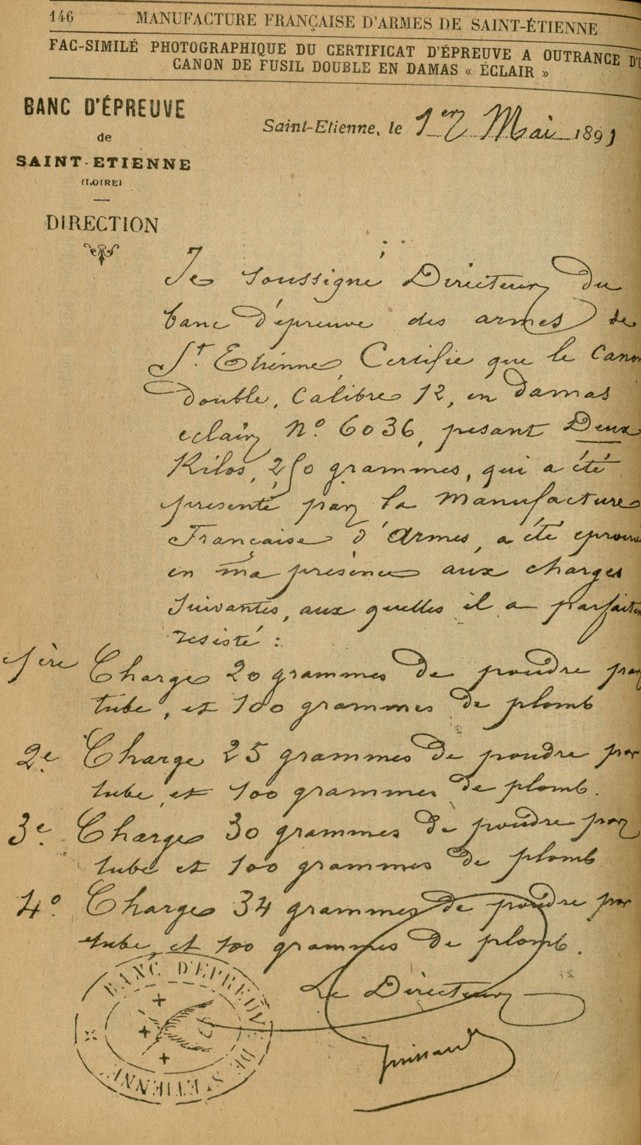 146 MANUFACTURE FRANÇAISE D'ARMES DE SAINT-ÉTIENNE
FAC-SIMILÉ PHOTOGRAPHIQUE DU CERTIFICAT D'ÉPREUVE A OUTRANCE D'U
CANON DE FUSIL DOUBLE EN DAMAS « ÉCLAIR »
BANC D'ÉPREUVE
de
SAINT-ETIENNE
(LOIRE)
DIRECTION
Saint-Etienne, le 1er Mai 1891
Je soussigné Directeur du
banc d'épreuve des armes de
St Etienne Certifie que le Canon
double, Calibre 12, en damas
eclair No 6036, pesant Deux
Kilos, 250 grammes, qui a été
presenté par la Manufacture
Française d'Armes, a été eprouv
en ma présence aux charges
suivantes, aux quelles il a parfaitem
resisté :
1ère Charge 20 grammes de poudre par
tube, et 100 grammes de plomb
2e Charge 25 grammes de poudre par
tube, et 100 grammes de plomb.
3e Charge 30 grammes de poudre par
tube et 100 grammes de plomb
4o Charge 34 grammes de poudre par
tube, et 100 grammes de plomb.
Le Directeur
BANC D'ÉPREUVE DE ST ETIENNE